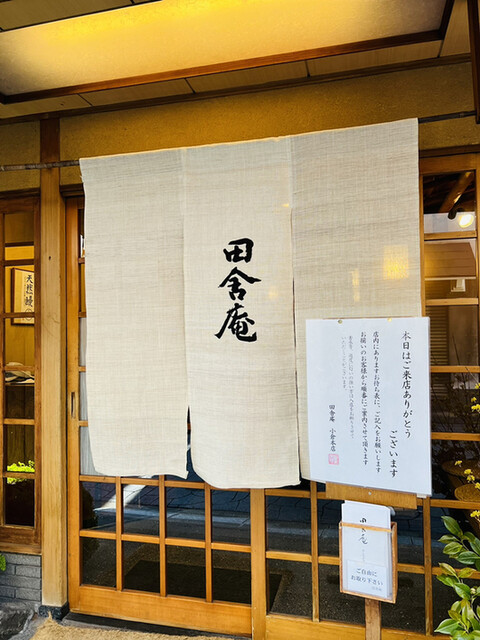 田舍庵
天然鰻の
本日はご来店ありがとう
ございます
店内にありますお待ち表に、ご記入をお願いします
お揃いのお客様から順番にご案内させて頂きます
田舍庵 小倉本店
田舍庵
ご自由に
お取り下さい